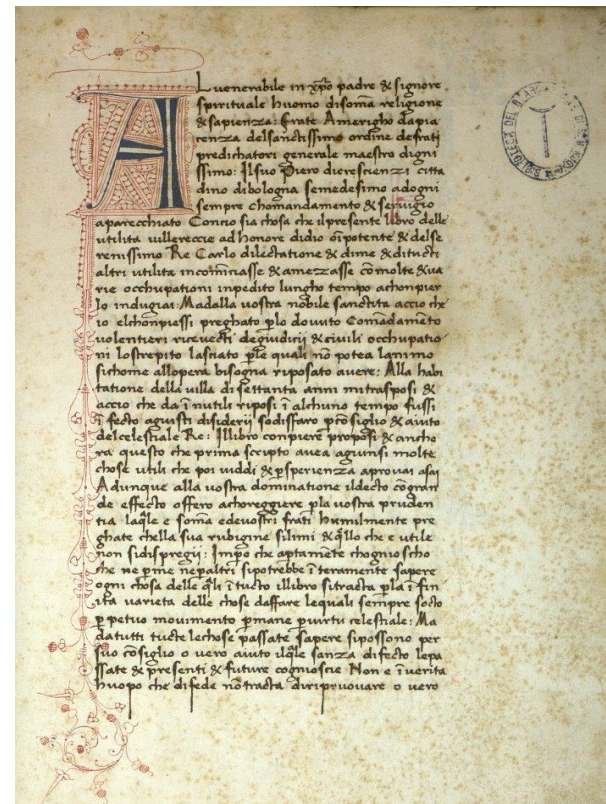 A L venerabile in xp̄o padre & signore
spirituale huomo disoma religione
& sapienza: frate Amerigho dapia
cenza delsanctissimo ordine defrati
predichatori generale maestro digni
ssimo: Ilsuo Piero dicrescienzi citta
dino dibologna semedesimo adogni
sempre chomandamento & servigio
aparecchiato Concio sia chosa che ilpresente libro delle
utilita villereccie ad honore didio oīpotente & delse
renissimo Re Carlo dilectatione & dime & ditucti
altri utilita incominciasse & amezasse cōmolte & va
rie occhupationi impedito lungho tempo achonpier
lo indugiai: Madalla vostra nobile sanctita accio che
io elchonpiessi preghato p̄lo dovuto Comādamēto
volentieri ricevecti degiudicij & civili occhupatio
ni lostrepito lasciato p̄le quali nō potea lanimo
sichome allopera bisogna riposato avere: Alla habi
tatione della villa di settanta anni mitrasposi &
accio che da ī nutili riposi ī alchuno tempo fussi
ī fecto aguisti disiderij sodisfaro p̄cōsiglio & aiuto
delcelestiale Re: Illibro conpiere proposi & anche
ra questo che prima scripto avea agiunsi molte
chose utili che poi viddi & p̄sperienza aprovai asai
Adunque alla vostra dominatione ildecto cōgran
de effecto offero achoreggiere p̄la vostra pruden
tia laq̄le e soma edevostri frati humilmente pre
ghate chella sua rubigine silimi & q̄llo che e utile
non sidispregij: Impo che aptamēte chogniosho
che ne p̄me nepaltri sipotrebbe īteramente sapere
ogni chosa delle q̄li ītucto illibro sitracta p̄la ī fin
ita varieta delle chose daffare lequali sempre socto
p̄ petuo movimento p̄mane p̄virtu celestiale: Ma
datutti tucte lechose passate sapere sipossono per
suo cōsiglio o vero aiuto ilq̄le sanza difecto lepa
ssate & presenti & future cognioscie Non e īverita
huopo che difede nōtracta diripruovare o vero